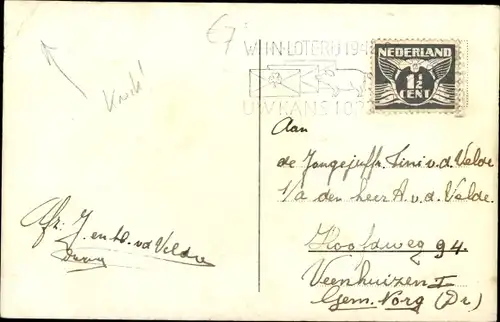 €7.-
WIJN-LOTERIJ 194
NEDERLAND
1½
CENT
UW KANS 10.
Knik!
Aan
de Jongejuffr. Tini v.d. Velde
p/a den heer A. v.d. Velde.
Hoofdweg 94.
Veenhuizen I
Gem. Norg (Dr.)
Afz. J. en W. vd Velde